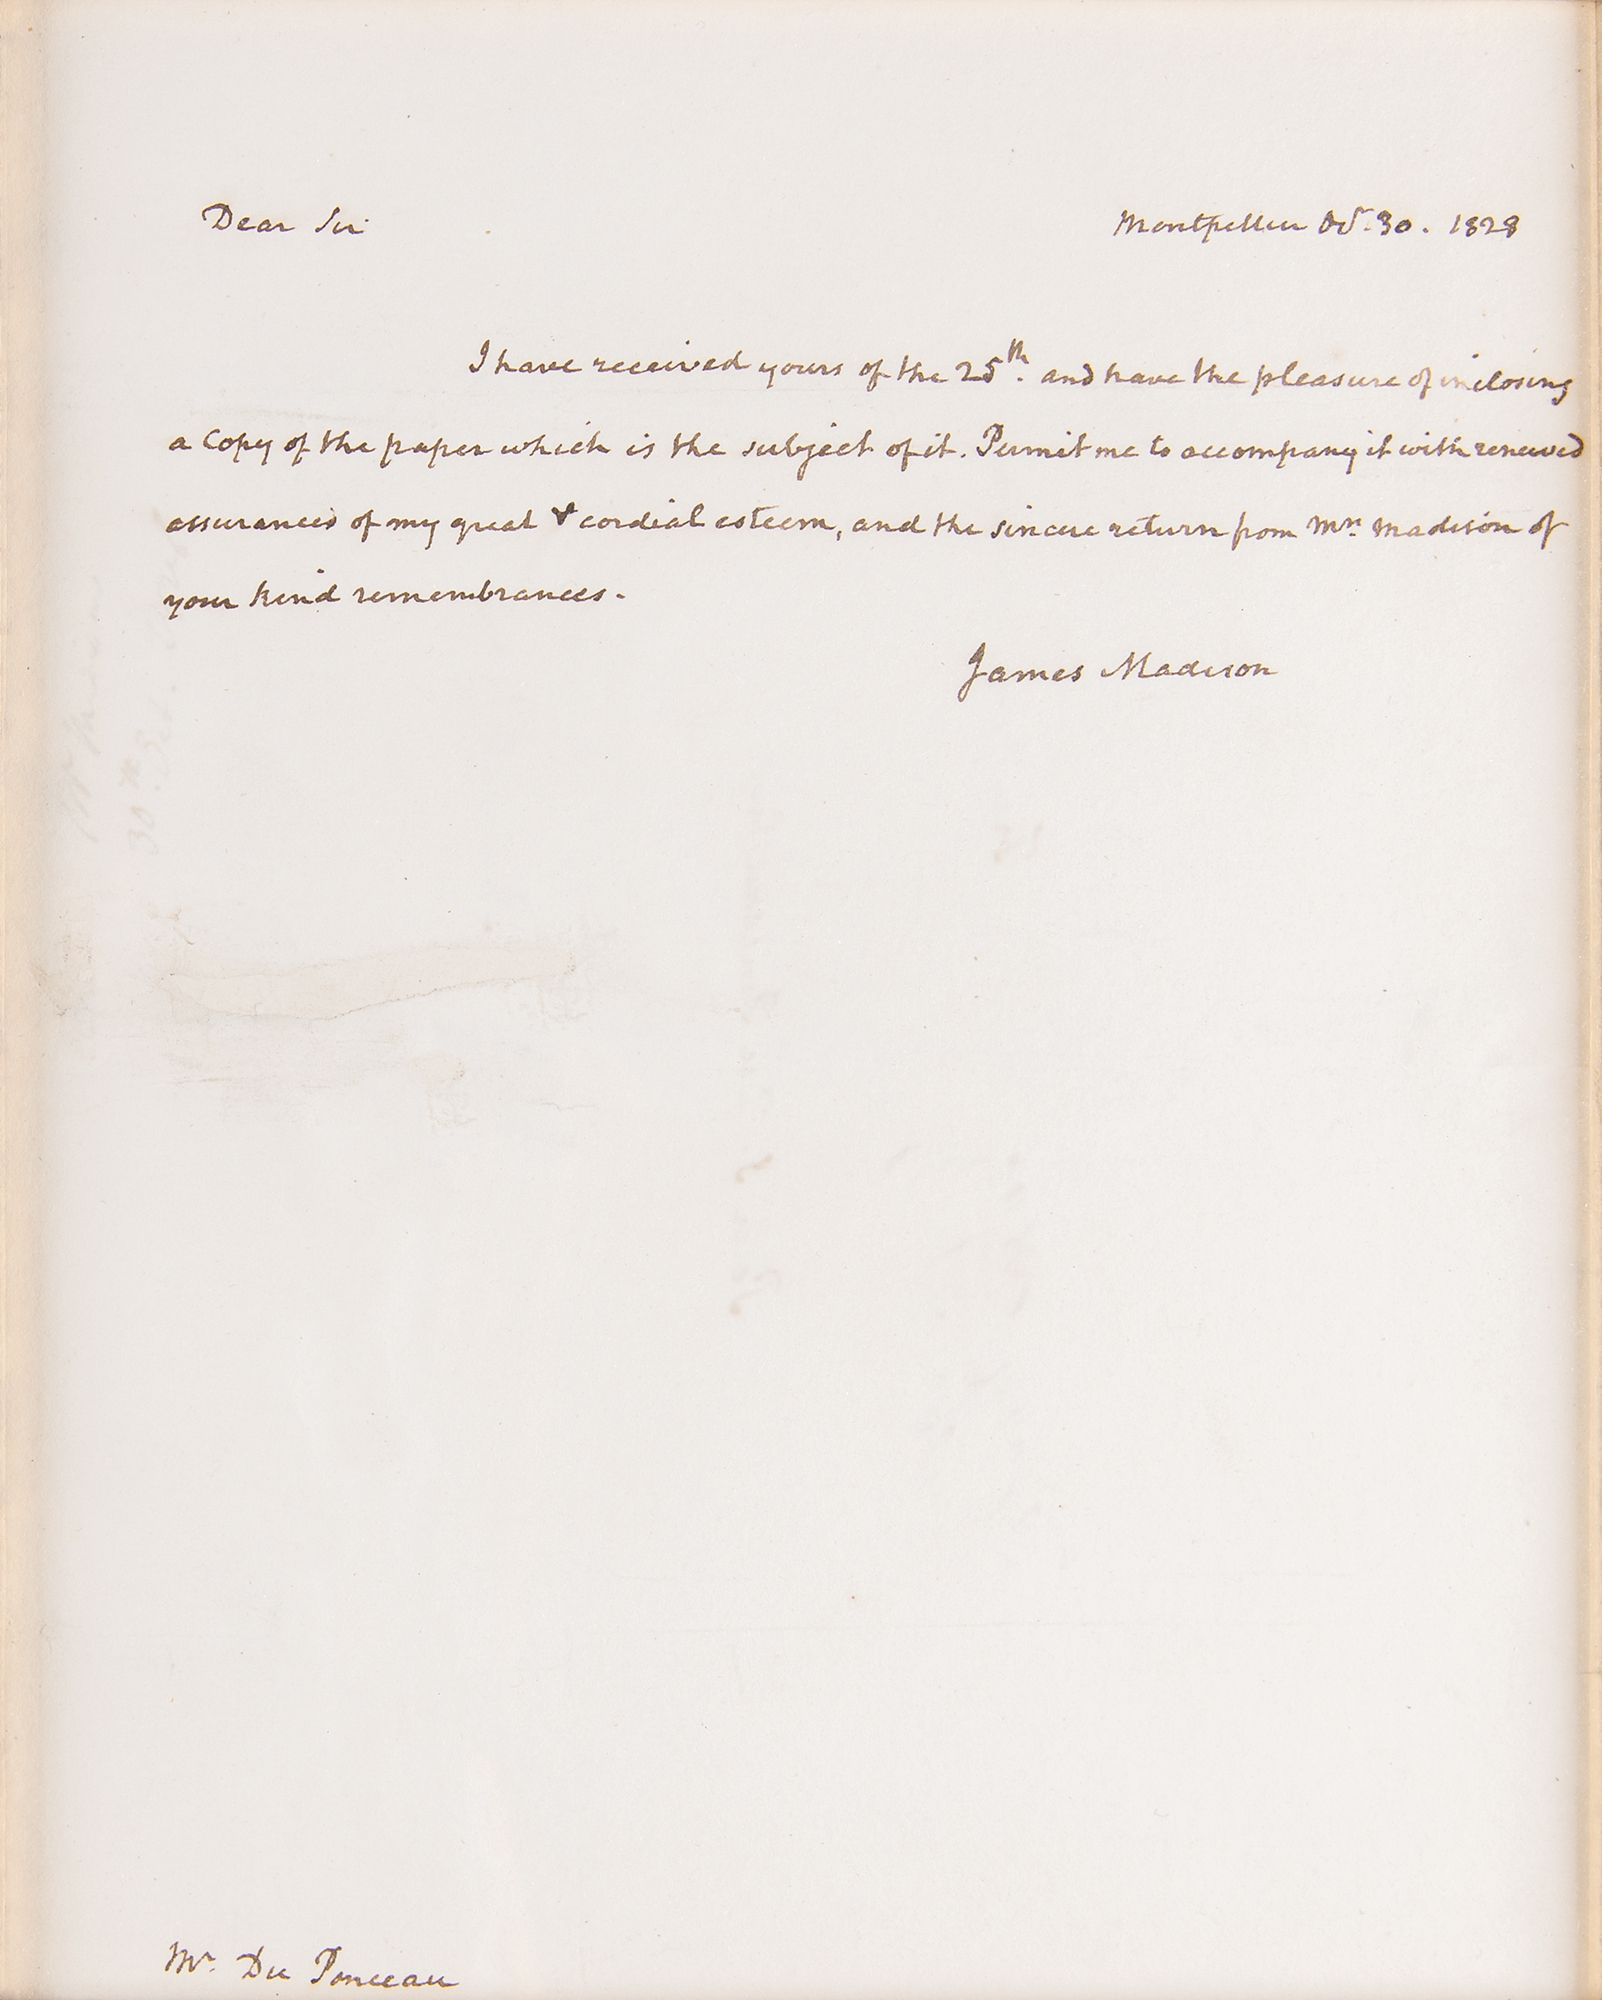 Dear Sir Montpellier Oct. 30. 1828
I have received yours of the 25th. and have the pleasure of inclosing
a Copy of the paper which is the subject of it. Permit me to accompany it with renewed
assurances of my great & cordial esteem, and the sincere return from Mrs. Madison of
your kind remembrances.
James Madison
Mr. Du Ponceau
30th. Oct.